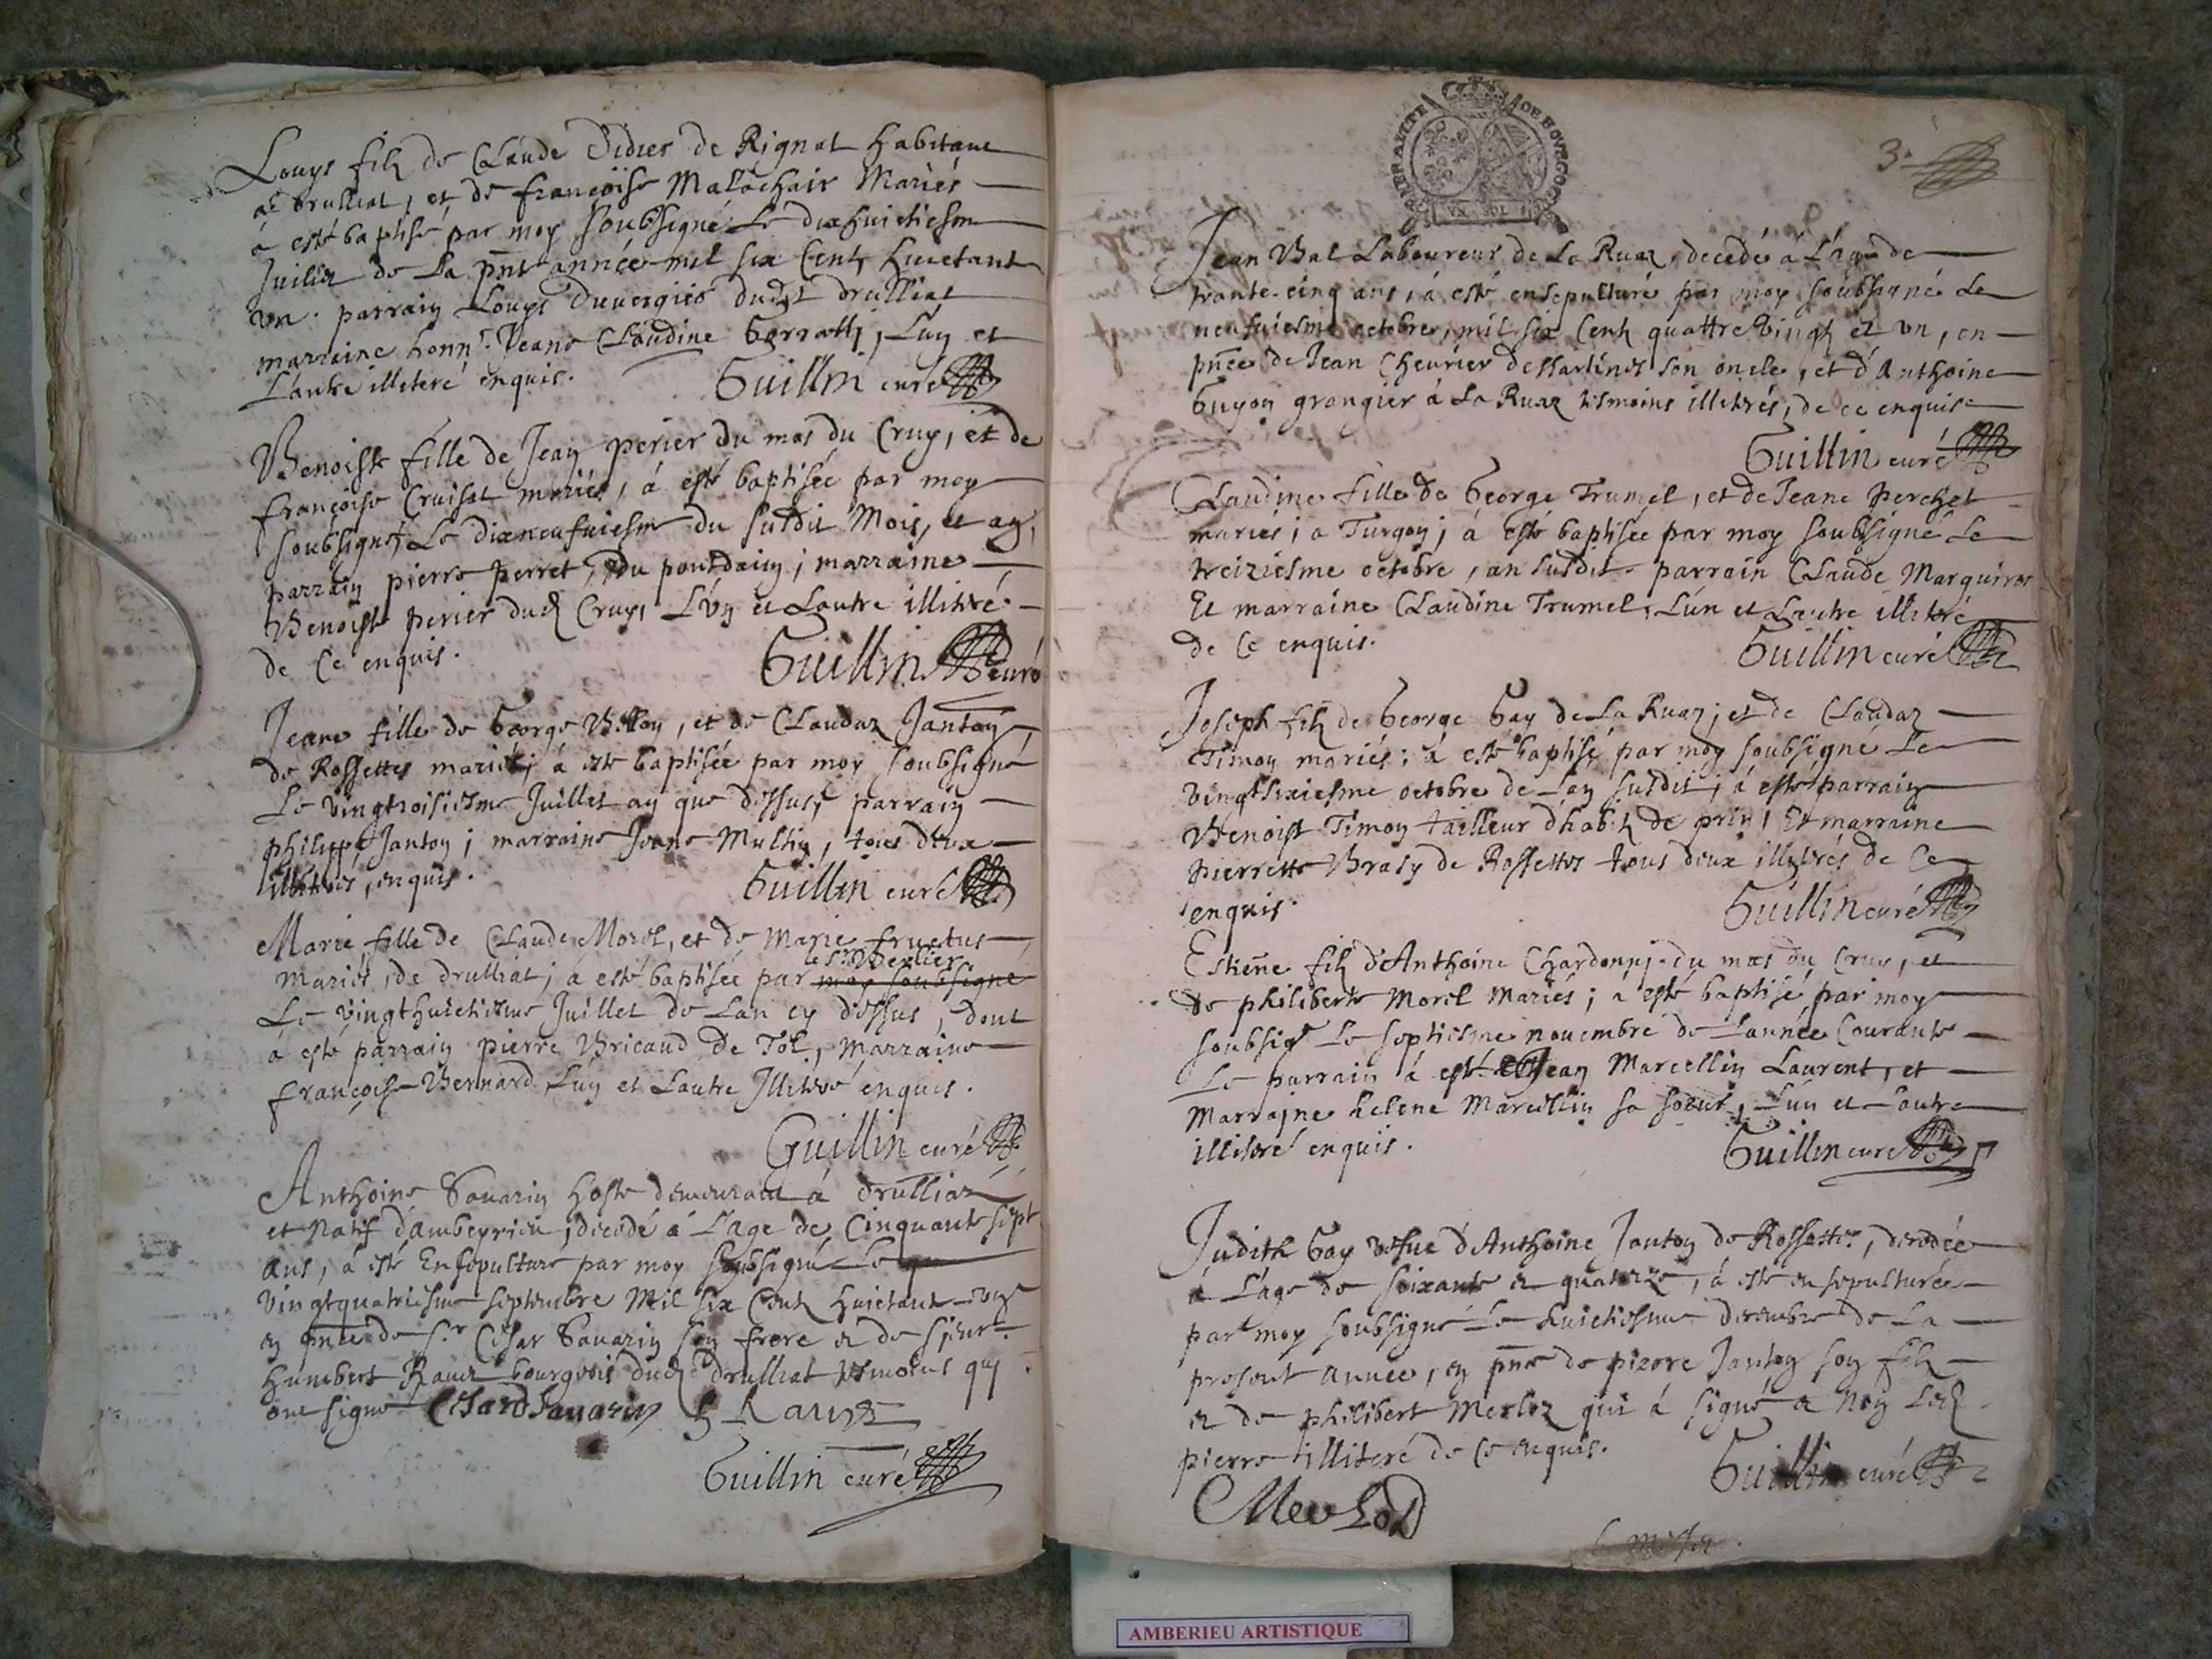 Louys filz de Claude Didier de Rignat habitant
a drulliat, et de françoise Malachair Mariés
á esté baptisé par moy soubsigné Le dixhuictiesm
Juillet de La pnte année mil six Cent huictante
un. parrain Louys Duvergier dudt drulliat
marraine honn. Jeane Claudine L'un et
L'autre illiteré enquis.
Guillin curé
Benoiste fille de Jean perier du mas du Cruy, et de
françoise Cruisat mariés, á esté baptisée par moy
soubsigné Le dixneufuiesme du susdit Mois, et an,
parrain pierre perret, du pontdain; marraine
Benoiste perier dud Cruy, L'un et Lautre illitré
de Ce enquis.
Guillin curé
Jeane fille de George Billon, et de Claudaz Jantoy
de Rossettes mariés; á esté baptisée par moy soubsigné
Le vingtroisiesme Juillet an que dessus; parrain
philippe Jantoy; marraine Jeane Multin, tous deux
illitrés, enquis.
Guillin curé
Marie fille de Claude Morel, et de Marie fructus
mariés, de drulliat; á esté baptisée par moy soubsigné
le Sr Berlier
Le vingthuictiesme Juillet de L'an cy dessus, dont
á esté parrain pierre Bricaud de Tol, Marraine
françoise Bernard L'un et Lautre Illitré enquis.
Guillin curé
Anthoine Sauarin hoste demeurant á drulliaz
et natif d'ambeyrieu, décédé á L'age de Cinquante sept
ans, á esté Ensepulturé par moy soubsigné Le
vingtquatriesme septembre Mil six Centz huictante un
en pnce de Sr César Sauarin son frere et de sieur
humbert Rauez bourgeois dud drulliat tesmoins qui
ont signé Cesard Sauarin Rauyz
Guillin curé
GENERALITE DE BOURGOGNE
VN SOL
3
Jean Bal Laboureur de La Ruaz, decedé á L'age de
trante-cinq ans, á esté ensepulturé par moy soubsigné Le
neufuiesme octobre, mil six Centz quattre vingtz et un, en
pnce de Jean Cheurier des son oncle, et d'Anthoine
Guyon grangier á La Ruaz tesmoins illitrés, de ce enquis
Guillin curé
Claudine fille de George Trumel, et de Jeane perchet
mariés; a Turgon; á esté baptisée par moy soubsigné Le
treiziesme octobre, an susdit. parrain Claude Marguiron
Et marraine Claudine Trumel, L'un et Lautre illitré
de Ce enquis.
Guillin curé
Joseph filz de George Gay de La Ruaz; et de Claudaz
Timon mariés; á esté baptisé par moy soubsigné Le
vingtsixiesme octobre de L'an susdit; á esté parrain
Benoist Timon tailleur d'habitz de prin, Et marraine
pierrette Brasy de Rossettes tous deux illitrés de Ce
enquis.
Guillin curé
Estiene filz d'Anthoine Chardonnj du mas du Cruy, et
de philiberte Morel Mariés; á esté baptisé par moy
soubsigé Le septiesme nouembre de L'année Courante
Le parrain á esté Jean Marcellin Laurent, et
Marrajne helene Marcellin sa soeur, L'un et Lautre
illitré enquis.
Guillin curé
Judith Gay vefue d'Anthoine Jantoy de Rossettes, decedée
á L'age de soixante et quatorze, á esté ensepulturée
par moy soubsigné Le huictiesme decembre de La
presente année, en pnce de pierre Jantoy son filz
et de philibert Merloz qui á signé et non Led
pierre illiteré de Ce enquis.
Guillin curé
AMBERIEU ARTISTIQUE